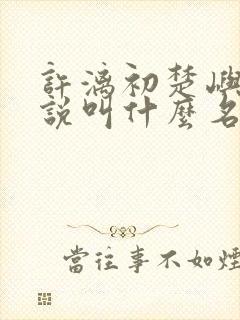 許漓初楚嶼
說叫什麼名
當往事不如煙